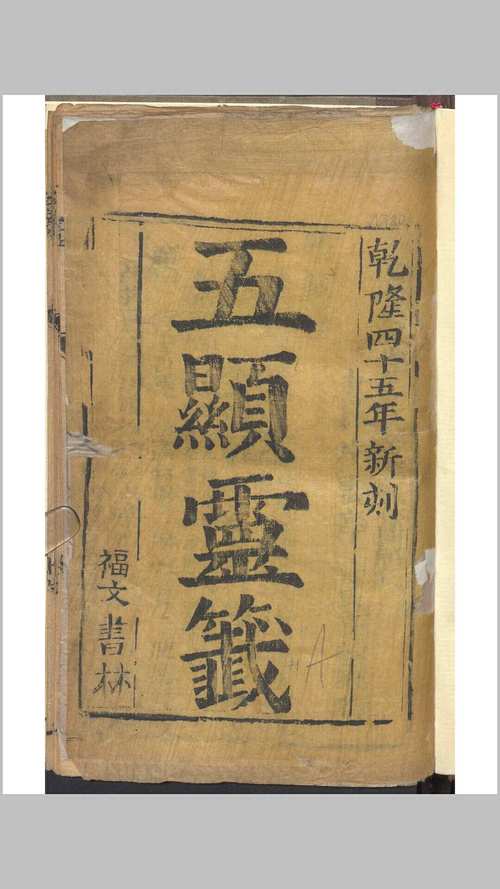 乾隆四十五年新刻
五顯靈籤
福文書林
A